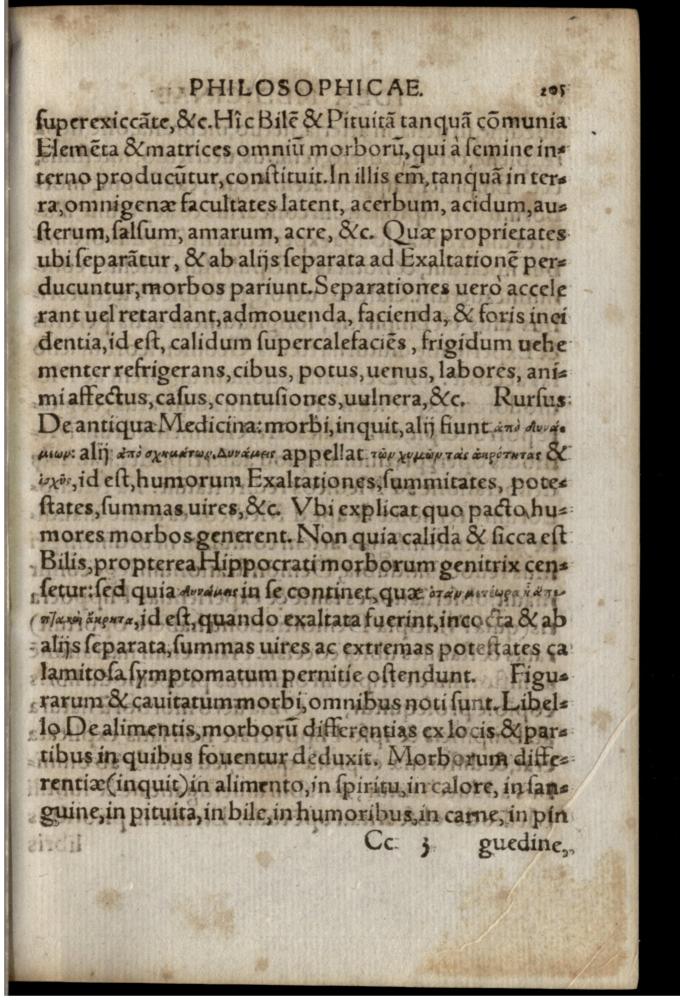 PHILOSOPHICAE. 205
superexiccãte,&c. Hîc Bilẽ & Pituitã tanquã cõmunia
Elemẽta & matrices omniũ morborũ, qui à semine in⸗
terno producũtur, constituit. In illis em̃, tanquã in ter⸗
ra, omnigenæ facultates latent, acerbum, acidum, au⸗
sterum, salsum, amarum, acre, &c. Quæ proprietates
ubi separãtur, & ab alijs separata ad Exaltationẽ per⸗
ducuntur, morbos pariunt. Separationes uerò accele
rant uel retardant, admouenda, facienda, & foris inci
dentia, id est, calidum supercalefaciẽs, frigidum uehe
menter refrigerans, cibus, potus, uenus, labores, ani⸗
mi affectus, casus, contusiones, uulnera, &c. Rursus
De antiqua Medicina: morbi, inquit, alij fiunt ἀπὸ δυνά⸗
μιων: alij ἀπὸ σχημάτων. Δυνάμεις appellat τῶν χυμῶν τὰς ἀκρότητας &
ἰσχὺν, id est, humorum Exaltationes, summitates, pote⸗
states, summas uires, &c. Vbi explicat quo pacto hu⸗
mores morbos generent. Non quia calida & sicca est
Bilis, propterea Hippocrati morborum genitrix cen⸗
setur: sed quia δυνάμεις in se continet, quæ ὁτὰν
ἄκρητα, id est, quando exaltata fuerint, incocta & ab
alijs separata, summas uires ac extremas potestates ca
lamitosa symptomatum pernitie ostendunt. Figu⸗
rarum & cauitatum morbi, omnibus noti sunt. Libel⸗
lo De alimentis, morborũ differentias ex locis & par⸗
tibus in quibus fouentur deduxit. Morborum diffe⸗
rentiæ (inquit) in alimento, in spiritu, in calore, in san⸗
guine, in pituita, in bile, in humoribus, in carne, in pin
Cc 3 guedine,